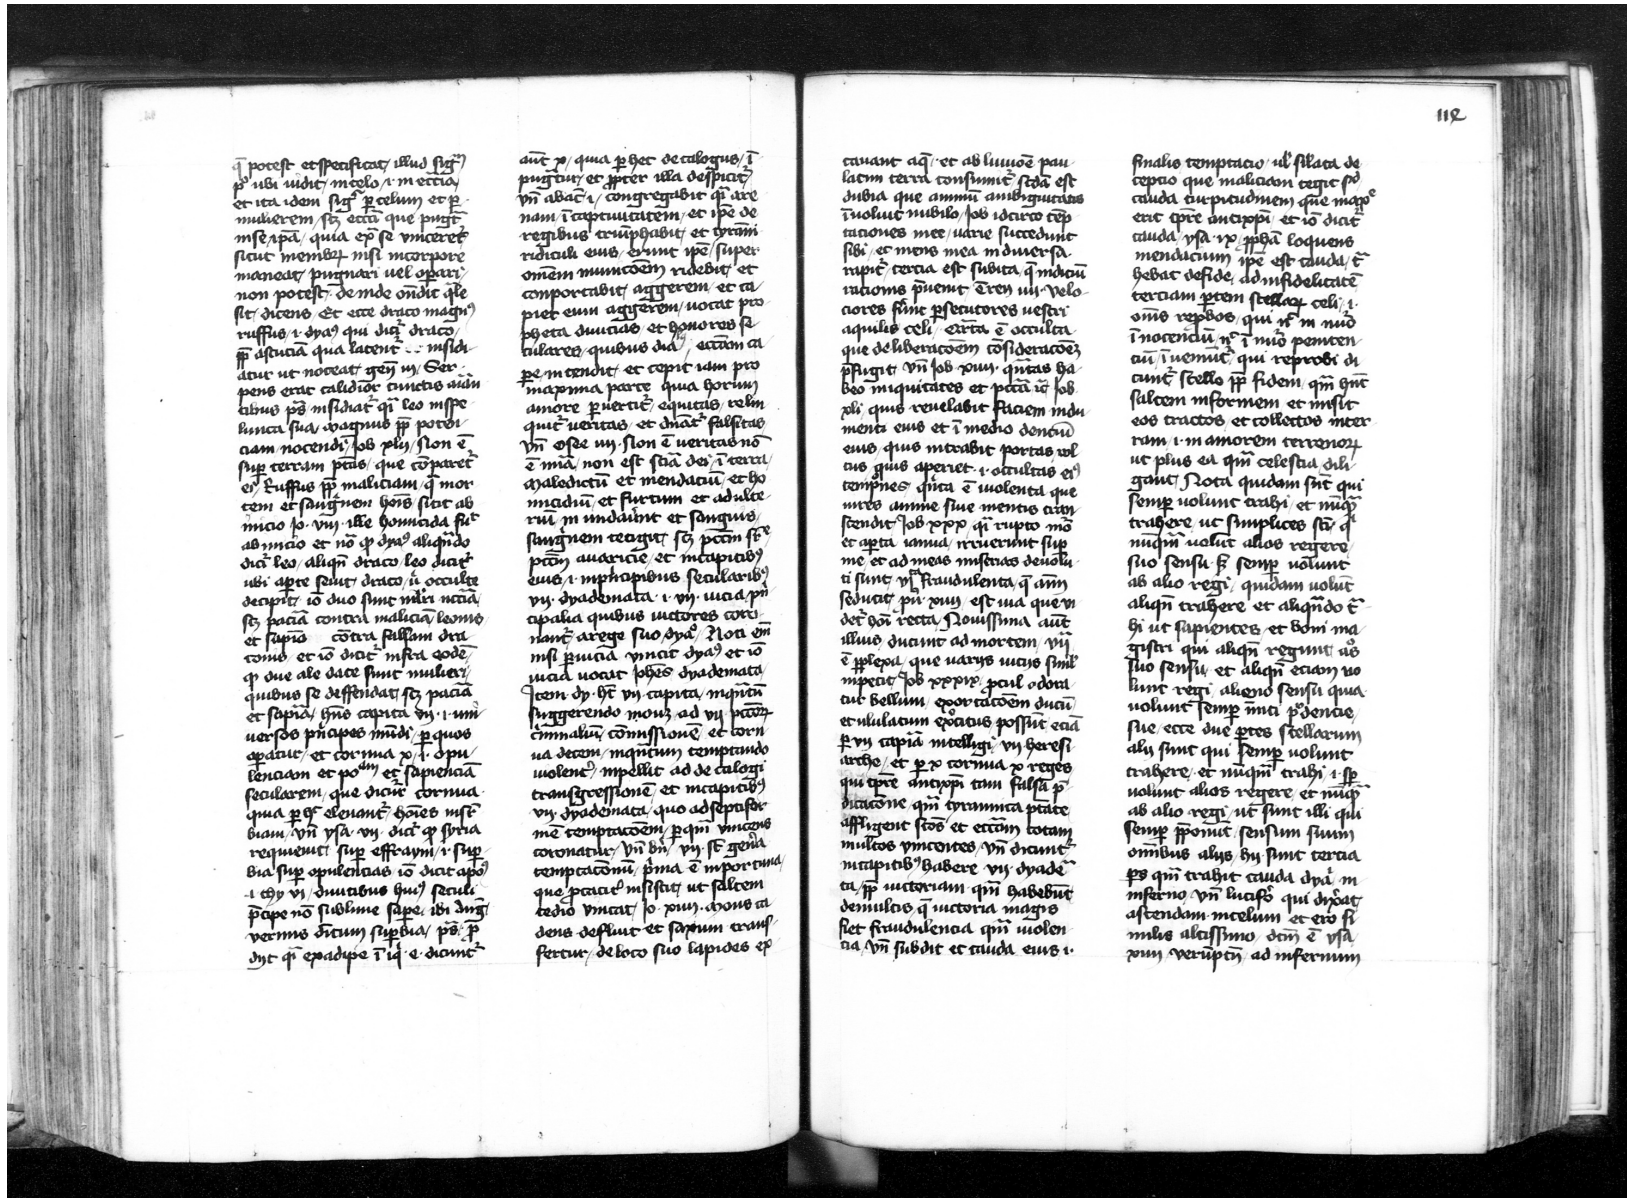 q̄ potest et specificat / illud sigͬ
pͦ ubi vidit / in celo / i· in eccīa /
et ita idem sigͬ ꝑ celum et ꝑ
mulierem / scꝫ eccīā que pugͭ
in se ip̄a / quia
sicut in corpore
maneat / pugnari vel oꝑari /
non potest / deinde oñdit q̄le
sit / dicens / Et ecce draco magnꝰ
ruffus / i· dyaꝰ qui dicͬ draco /
ꝓp̄ astuciā qua latenͭ insidi
atur ut noceat / geñ iii / Ser
pens erat calidior cunctis aīan
tibus / p̄s insidiatͬ q̄i leo in spe
lunca sua / magnus ꝓp̄ poten
ciam nocendi / Job xli / Non ē
suꝑ terram p̄tās / que comparetͬ
ei / Ruffus ꝓp̄ maliciam / q̄ mor
tem et sanguīem hoīs sitit ab
inicio Jo· viii· ille homicida fuͭ
ab inicio et nō ꝙ dyaꝰ aliqn̄do
dicͬ leo / aliqn̄ draco / leo dicitͬ
ubi aꝑte sevit / draco / u̇ occulte
decipit / iō duo sunt
scꝫ paciā contra maliciam leonis /
et sapīa cōtra falsam dra
conis / et iō dicitͬ infra eodē /
ꝙ due ale date sunt mulieri /
quibus se deffendat / scꝫ paciā
et sapīa / hn̄s capita vii· i· uni
versos pn̄cipes mūdi / ꝑ quos
oꝑatur / et cornua x / i· opu
lenciam et poᵃᵐ et sapienciā
secularem / que dicūtͬ cornua
quia ꝑ h̄ elevantͬ hoīes in suꝑ
biam / vn̄ ysa· vii· dicͬ ꝙ syria
requievit / suꝑ effraym / i· suꝑ
bia suꝑ opulencias / iō dicit apōꝰ
·i· thy vi / divitibus huiꝰ seculi
p̄cipe nō sublime saꝑe / ibi Aug̅
vermis divitum suꝑbia / p̄s / ꝓ
dijt q̄i ex adipe ī iqͥ· e· dicuntͬ
aūt x / quia ꝑ hec decalogus / ī
pugͣtur / et ꝓpter illa despicitͬ
vn̄ abac̄ i / congregabit q̄i are
nam / ī captivitatem / et ip̄e de
regibus triūphabit / et tyrāni
ridiculi eius / erunt ip̄e / super
omēm municōem ridebit / et
conportabit / aggerem / et ca
piet eum aggerem / vocat pro
pheta divicias / et honores se
culares / quibus diaꝰ eccīam ca
ꝑe / intendit / et cepit iam pro
maxima parte quia horum
amore ꝑvertitͬ / equitas / relin
quitͬ veritas / et dn̄atͬ falsitas /
vn̄ Osee iiii / Non ē veritas nō
ē mīa / non est sciā dei / ī terra /
maledictū et mendaciū / et ho
micidiū / et furtum et adulte
riū / inundavīnt et sanguis /
sanguīem tetigit / scꝫ pctm̄
pctm̄ avaricie / et in capitibꝰ
eius / i· in pn̄cipibus secularibꝰ
vii· dyademata· i· vii· vicia pn̄
cipalia quibus victores coro
nantͬ a rege suo dyaꝰ / Noti em̄
nisi ꝑ vicia vincit dyaꝰ / et iō
vicia vocat Joh̄es dyademata /
Item· dy· hͭ vii capita / inqͣtū
suggerendo movꝫ· ad vii pctōꝝ
crīmaliū / cōmissionē / et corn
ua decem / inqͣntum temptando
violentͬ / inpellit ad decalogi
transgressionē / et in capitibꝰ
vii· dyademata / quo ad septifor
mē temptacōem / ꝑ quam vincens
coronatur / vn̄ vii· sͭ genͬa
temptacōnū / pͥma ē inportuna /
que ꝓcacitͬ insistit / ut saltem
tedio vincat / Jo· xiiii· Mons ca
dens defluit et saxum trans /
fertur / de loco suo lapides ex
cavant aq̄· et ab luvioē pau
latim terra consumitͬ scdā est
dubia que animū ambiguitatis
īvolvit nubilo / Job idcirco tēp
taciones mee / varie succedunt
sibi / et mens mea in diversa
rapitͬ / tercia est subita / q̄ iudiciū
racionis p̄venit / Tren iiii· Velo
ciores fūnt ꝑsecutores nostri
aquilis celi / Qͣrta ē occulta
que deliberacōem cōsideracōeꝫ
p̄fugit / vn̄ Job xiii· qn̄tas ha
beo iniquitates et pctā / itͭ Job
xli / quis revelabit faciem indu
menti eius et ī medio dentiū
eius / quis intrabit portas vul
tus quis aperiet· i· occultas eiꝰ
tempͦnes / qn̄ta ē violenta que
vires anime sive mentis tran
scendit / Job xxx / q̄i rupto mͦ
et aꝑta ianua / irruerunt suꝑ
me / et ad meas miserias devolu
ti sunt / viͭᵃ fraudulenta / q̄ aīm
seducit / pͬu xiiii / est via que vi
detͬ hoī recta / Novissima aūt
illius / ducunt ad mortem / viī
ē ꝑplexa / que varijs vicijs siml̓
inpetit / Job xxxix / ꝓcul odora
tur bellum / exortacōem ducū /
et ululatum exͬcitus possūt eciā
ꝑ vii capita intelligi / vii heresi
arche / et ꝑ x cornua x reges
qui tp̄re antix̄pi tam falsa p̄
dicacōne qͣm tyrannica p̄tate
affligent scōs et eccīam totam
multos vincentes / vn̄ dicuntͬ
in capitibꝰ habere vii· dyadē
ta / ꝓp̄ victoriam qͣm habebūt
de multis / q̄ victoria magis
fiet fraudulencia qͣm violen
cia / vn̄ subdit et cauda eius i·
112
finalis temptacio / ul̓ similata de
ceptio que maliciam tegit sͥ
cauda turpitudinem que
erit tp̄re antixp̄i / et iō dicitͬ
cauda / ysa· ix / ꝓphā loquens
mendacium ip̄e est cauda / tͬ
hebat de fide / ad infidelitatē
terciam ꝑtem stellaꝝ celi / i·
om̄s reꝓbos / qui
īnocenciū ī peniten
ciū / īveniūtͬ qui reprobi di
cuntͬ stelle ꝓp̄ fidem / qͣm hn̄t
saltem informem et misit
eos tractos / et collectos in ter
ram / i· in amorem terrenoꝝ
ut plus ea qͣm celestia dili
gant / Nota quidam sūt qui
semꝑ volunt trahi / et nūqͣ
trahere / ut simplices scī / qͥ
nūqͣm volūt alios regere /
suo sensu· sꝫ semꝑ volunt
ab alio regi / quidam volūt
aliqn̄ trahere et aliqn̄do tͬ
hi ut sapientes / et boni ma
gistri qui aliqn̄ regunt aͦs
suo sensu / et aliqn̄ eciam vo
lunt regi / alieno sensu quia
volunt semꝑ pͦdencie /
sue / ecce due ꝑtes stellarum
alij sunt qui semꝑ volunt
trahere / et nūqͣm trahi / i· sꝑ
volunt alios regere / et nūqͣ
ab alio regi / ut sunt illi qui
semꝑ ꝓponūt / sensum suum
omībus alijs / hij sunt tercia
ꝑs qͣm trahit cauda dyaꝉ in
inferno / vn̄ lucifͬ qui dixͬat /
ascendam in celum et ero si
milis altissimo / dcm̄ ē ysa
xiiii verūptn̄ / ad infernum